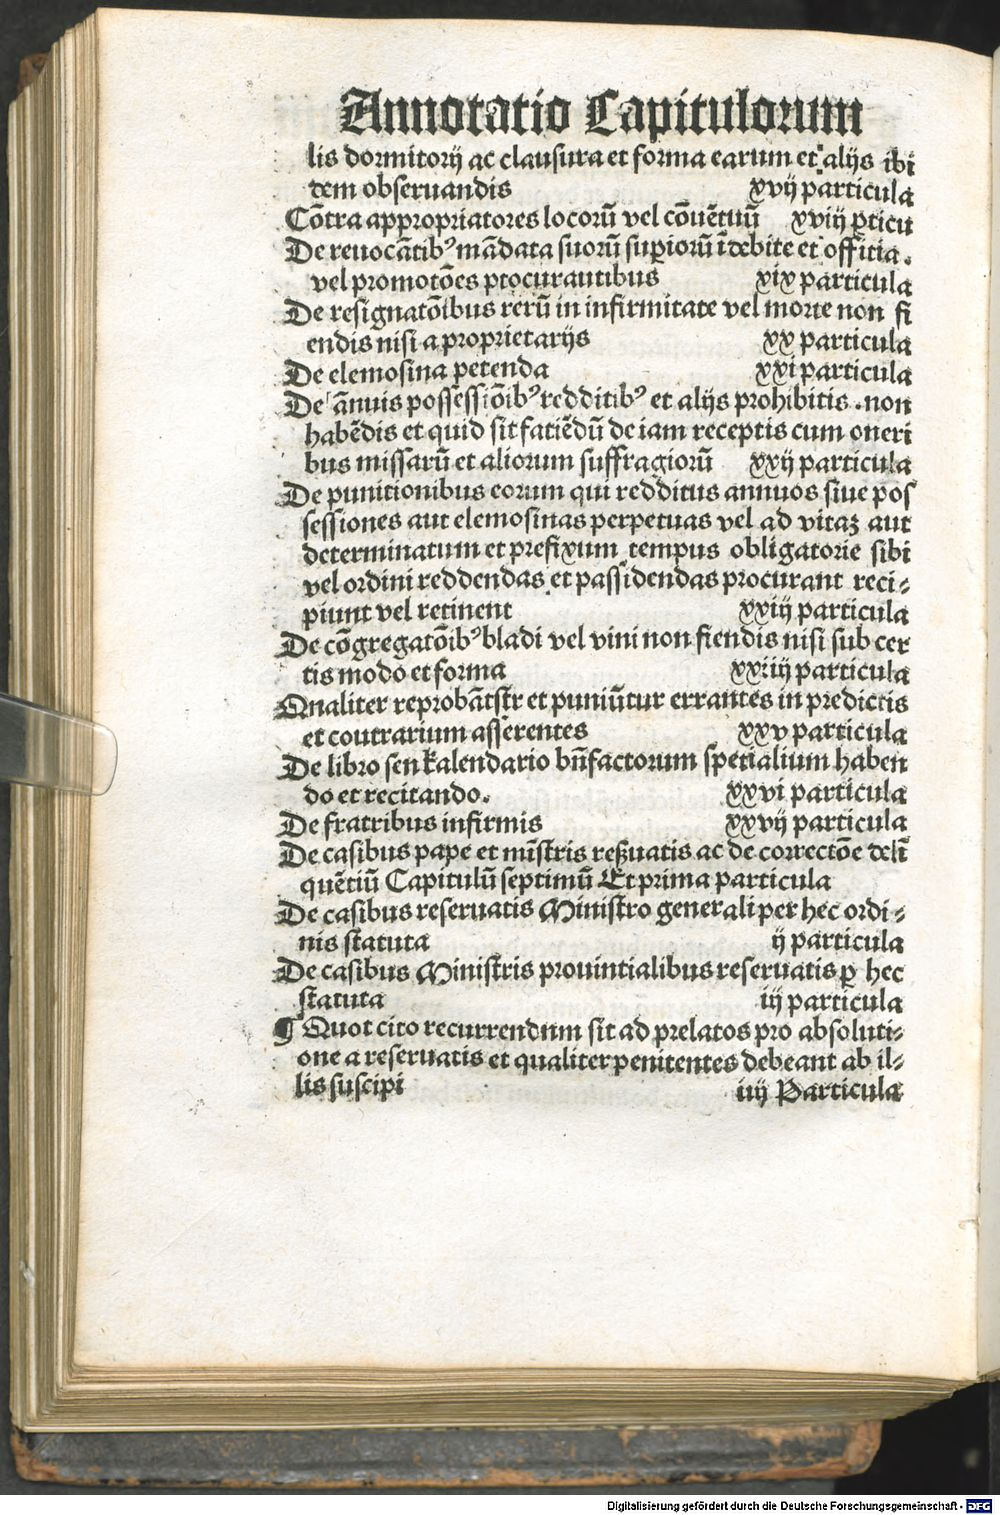 Annotatio Capitulorum
lis dormitorij ac clausura et forma earum et alijs ibi
dem obseruandis xvij particula
Cõtra appropriatores locorũ vel cõuẽtuũ xviij ꝑticu
De reuocãtibꝰ mãdata suorũ suꝑiorũ ĩdebite et offitia.
vel promotões procurantibus xix particula
De resignatõibus rerũ in infirmitate vel morte non fi
endis nisi a proprietarijs xx particula
De elemosina petenda xxi particula
De ãnuis possessiõibꝰ redditibꝰ et alijs prohibitis .non
habẽdis et quid sit fatiẽdũ de iam receptis cum oneri
bus missarũ et aliorum suffragiorũ xxij particula
De punitionibus eorum qui redditus annuos siue pos
sessiones aut elemosinas perpetuas vel ad vitaꝫ aut
determinatum et prefixum tempus obligatorie sibi
vel ordini reddendas et passidendas procurant reci⸗
piunt vel retinent xxiij particula
De cõgregatõibꝰ bladi vel vini non fiendis nisi sub cer
tis modo et forma xxiiij particula
Qualiter reprobãtstr et puniũtur errantes in predictis
et coutrarium asserentes xxv particula
De libro sen kalendario bñfactorum spetialium haben
do et recitando. xxvi particula
De fratribus infirmis xxvij particula
De casibus pape et mĩstris reßuatis ac de correctõe delĩ
quẽtiũ Capitulũ septimũ Et prima particula
De casibus reseruatis Ministro generali per hec ordi⸗
nis statuta ij particula
De casibus Ministris prouintialibus reseruatis ꝑ hec
statuta iij particula
¶ Quot cito recurrendum sit ad prelatos pro absoluti⸗
one a reseruatis et qualiter penitentes debeant ab il⸗
lis suscipi iiij Particula
Digitalisierung gefördert durch die Deutsche Forschungsgemeinschaft - DFG